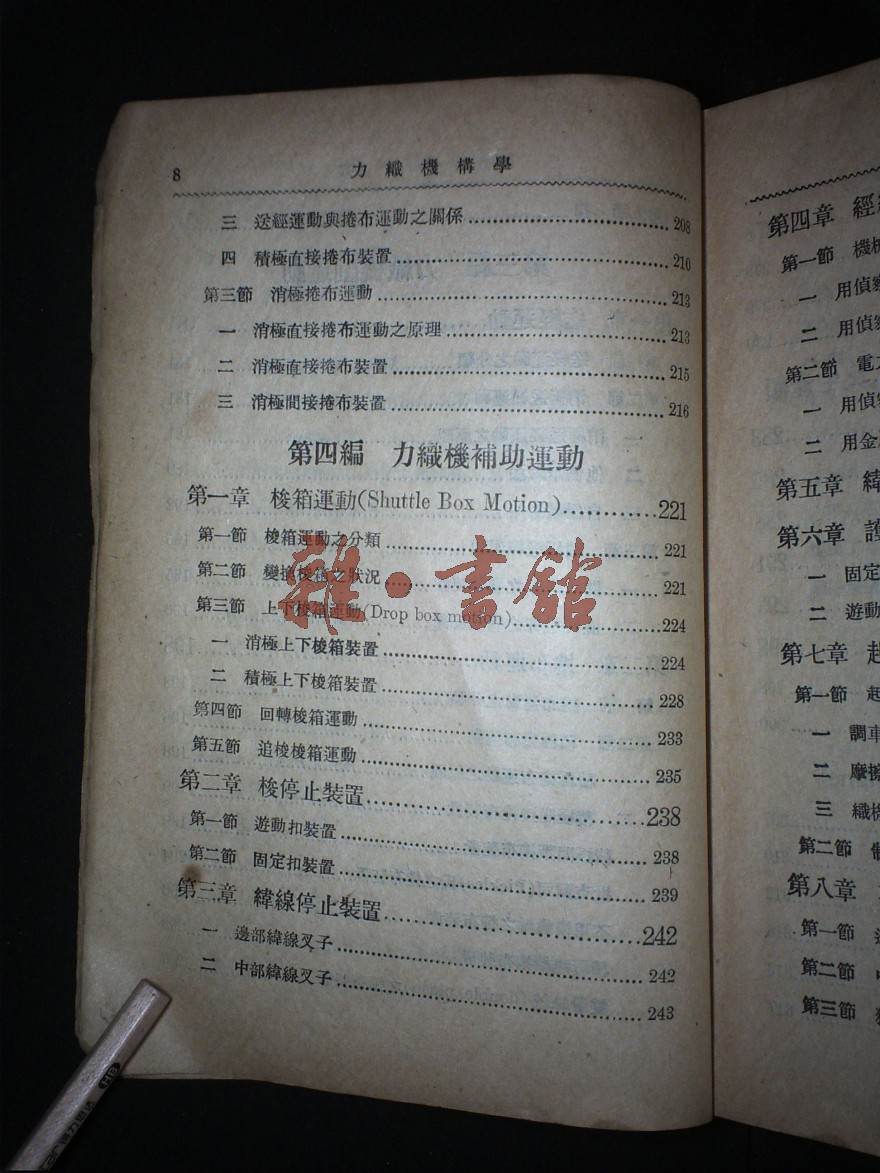 8 力織機構學
三 送經運動與捲布運動之關係 208
四 積極直接捲布裝置 210
第三節 消極捲布運動 213
一 消極直接捲布運動之原理 213
二 消極直接捲布裝置 215
三 消極間接捲布裝置 216
第四編 力織機補助運動
第一章 梭箱運動(Shuttle Box Motion) 221
第一節 梭箱運動之分類 221
第二節 變換梭箱之狀況 221
第三節 上下梭箱運動(Drop box motion) 224
一 消極上下梭箱裝置 224
二 積極上下梭箱裝置 228
第四節 回轉梭箱運動 233
第五節 追梭梭箱運動 235
第二章 梭停止裝置 238
第一節 遊動扣裝置 238
第二節 固定扣裝置 239
第三章 緯線停止裝置 242
一 邊部緯線叉子 242
二 中部緯線叉子 243
雅·書館
HB
第四章 經
第一節 機械
一 用偵察
二 用偵察
第二節 電
一 用偵察
二 用金
第五章 緯
第六章 護
一 固定
二 遊動
第七章 起
第一節 起
一 調車
二 摩擦
三 織機
第二節 制
第八章
第一節
第二節
第三節